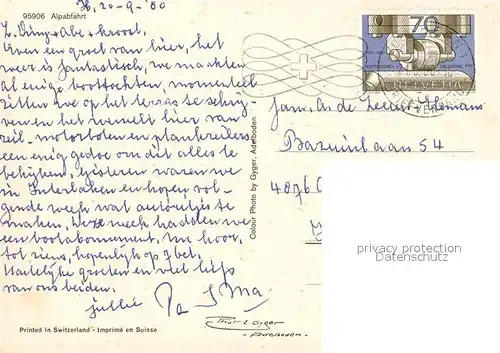 95906 Alpabfahrt
20-9-'80
Even een groet van hier, het
weer is fantastisch, we maakten
al enige boottochten, momenteel
zitten we op het terras te schrij-
ven en het wemelt hier van
zeil- motorboten en plankzeilers
een enig gedoe om dit alles te
bekijken, gisteren waren we
in Interlaken en hopen vol-
gende week wat autoritjes te
maken, deze week hadden we
een bootabonnement. Nu hoor,
tot ziens, hopenlijk op 7 bet.
Hartelijke groeten en veel liefs
van ons beiden.
jullie Pa & Ma
Printed in Switzerland - Imprimé en Suisse
Colour Photo by Gyger, Adelboden
70
HELVETIA
Fam. A. de
54
4876
privacy protection
www.oldthing.com
Gyger
Adelboden